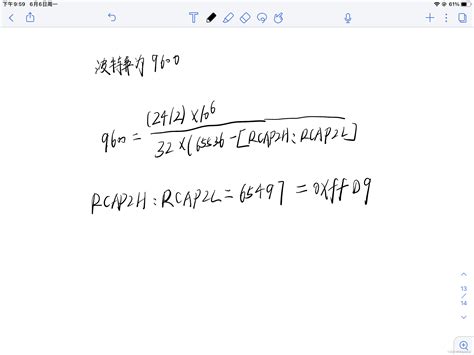 下午9:59 6月6日周一
61%
波特率为9600
9600 = (24/2)×10⁶
32×(65536-[RCAP2H:RCAP2L]
RCAP2H:RCAP2L=65497=0XffD9
13
14